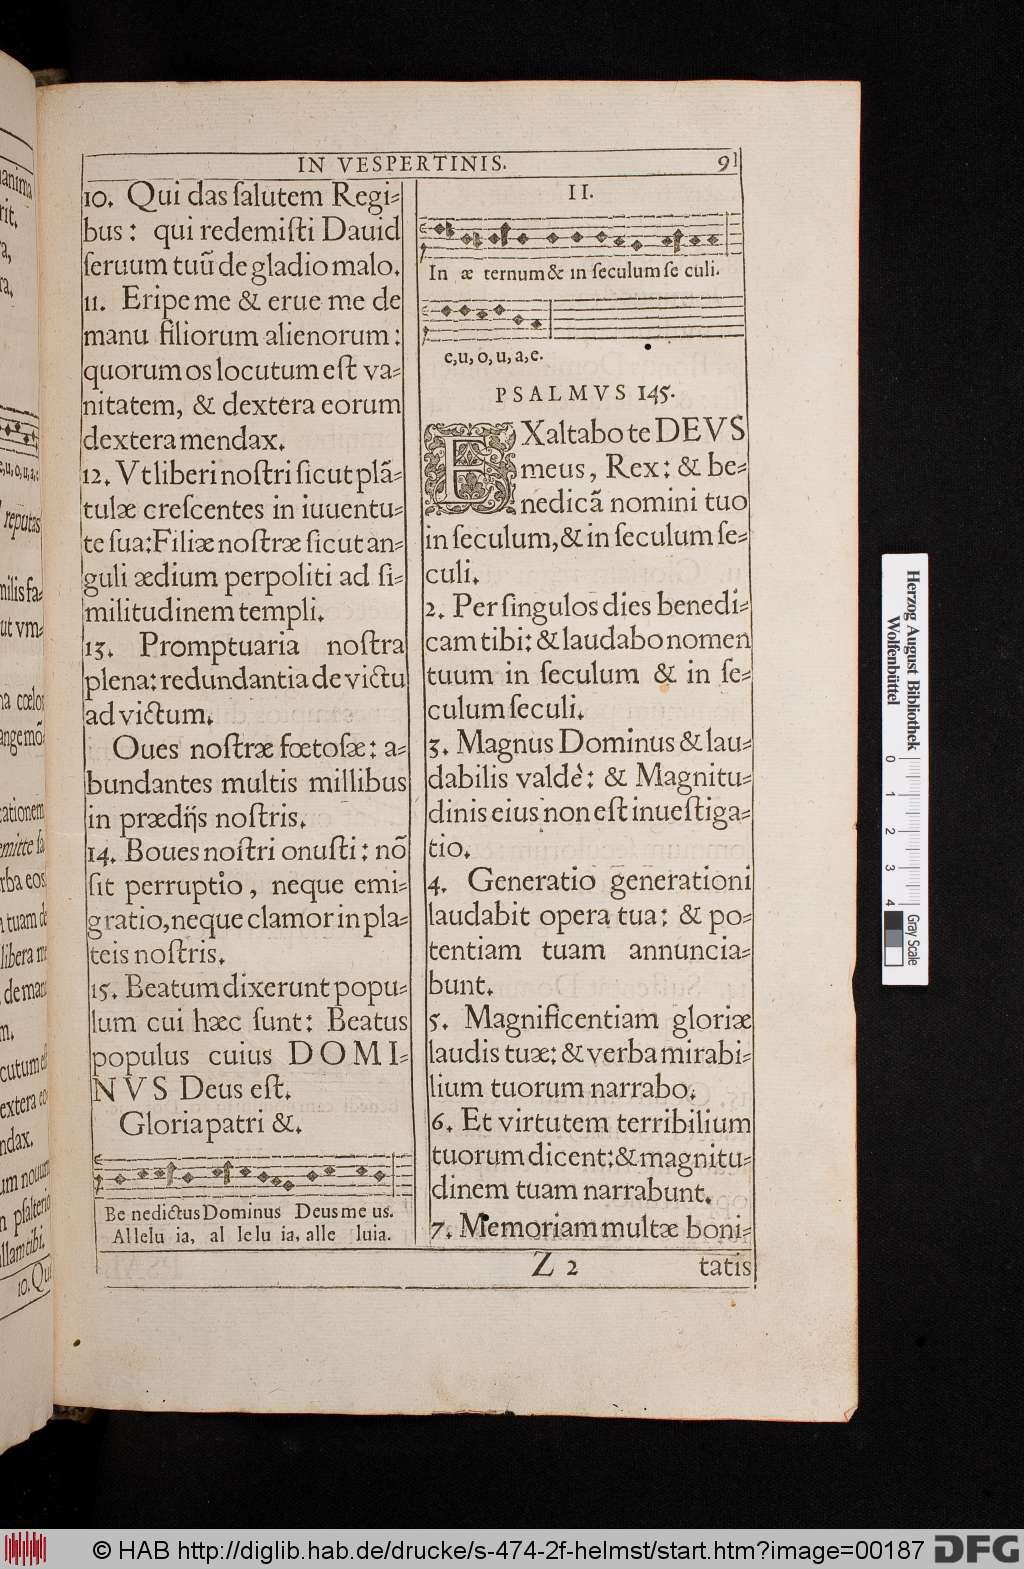 IN VESPERTINIS. 91
10. Qui das ſalutem Regi-
bus: qui redemiſti Dauid
ſeruum tuũ de gladio malo.
11. Eripe me & erue me de
manu filiorum alienorum:
quorum os locutum eſt va-
nitatem, & dextera eorum
dextera mendax.
12. Vt liberi noſtri ſicut plã-
tulæ creſcentes in iuuentu-
te ſua: Filiæ noſtræ ſicut an-
guli ædium perpoliti ad ſi-
militudinem templi.
13. Promptuaria noſtra
plena: redundantia de victu
ad victum.
Oues noſtræ fœtoſæ: a-
bundantes multis millibus
in prædijs noſtris.
14. Boues noſtri onuſti: nõ
ſit perruptio, neque emi-
gratio, neque clamor in pla-
teis noſtris.
15. Beatum dixerunt popu-
lum cui hæc ſunt: Beatus
populus cuius DOMI-
NVS Deus eſt.
Gloria patri &.
Be nedictus Dominus Deus me us.
Allelu ia, al le lu ia, alle luia.
II.
In æ ternum & in ſeculum ſe culi.
e, u, o, u, a, e.
PSALMVS 145.
EXaltabo te DEVS
meus, Rex: & be-
nedicã nomini tuo
in ſeculum, & in ſeculum ſe-
culi.
2. Per ſingulos dies benedi-
cam tibi: & laudabo nomen
tuum in ſeculum & in ſe-
culum ſeculi.
3. Magnus Dominus & lau-
dabilis valdè: & Magnitu-
dinis eius non eſt inueſtiga-
tio.
4. Generatio generationi
laudabit opera tua: & po-
tentiam tuam annuncia-
bunt.
5. Magnificentiam gloriæ
laudis tuæ: & verba mirabi-
lium tuorum narrabo.
6. Et virtutem terribilium
tuorum dicent: & magnitu-
dinem tuam narrabunt.
7. Memoriam multæ boni-
Z 2 tatis
Herzog August Bibliothek
Wolfenbüttel
0 1 2 3 4
Gray Scale
e, u, o, u, a, e
reputas
milis fa-
ut vm-
cationem
rba eos
a tuam de
libera me
extera eo
ndax.
um nouum
n pſalterio
10. Qui
© HAB http://diglib.hab.de/drucke/s-474-2f-helmst/start.htm?image=00187
DFG